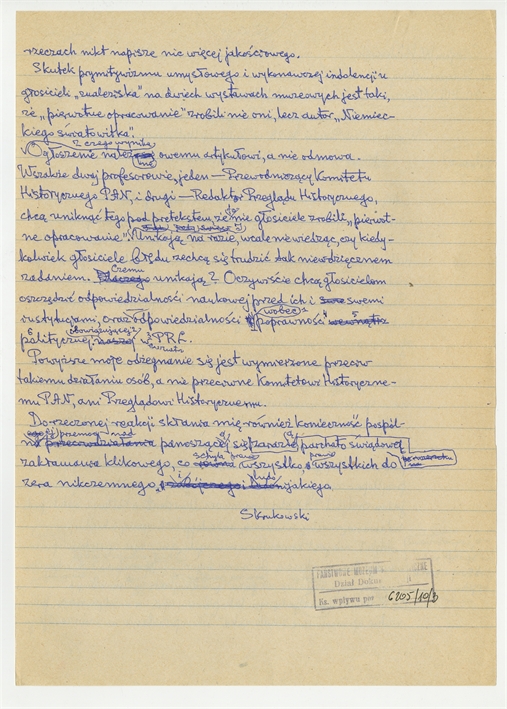 rzeczach nikt napisze nic więcej jakościowego.
Skutek prymitywizmu umysłowego i wykonawczej indolencji u
głosicieli „znaleziska" na dwóch wystawach muzeowych jest taki,
że „pierwotne opracowanie" zrobili nie oni, lecz autor „Niemiec-
kiego światowitka".
z czego wynika
Ogłoszenie należy się owemu artykułowi, a nie odmowa.
Wszakże dwaj profesorowie, jeden — Przewodniczący Komitetu
Historycznego PAN, i drugi — Redaktor Przeglądu Historycznego,
chcą uniknąć tego pod pretekstem, że nie głosiciele zrobili „pierwot-
ne opracowanie". Unikają na razie, wcale nie wiedząc, czy kiedy-
kolwiek głosiciele błędu zechcą się trudzić tak niewdzięcznem
zadaniem. Czemu unikają? Oczywiście chcą głosicielom
oszczędzić odpowiedzialności naukowej przed ich i swemi
instytucjami, oraz odpowiedzialności wobec poprawności
politycznej obowiązującej PRL.
Powyższe moje odżegnanie się jest wymierzone przeciw
takiemu działaniu osób, a nie przeciwne Komitetowi Historyczne-
mu PAN, ani Przeglądowi Historycznemu.
Do rzeczonej reakcji skłania mię również konieczność pospól-
przemocy nad panoszącej się zarazie parchato świądowej
zakłamawa klikowego, co wszystko wszystkich do
zera nikczemnego
Skrukowski
PAŃSTWOWE MUZEUM
Dział Doku
Ks. wpływu poz 6205/10/3